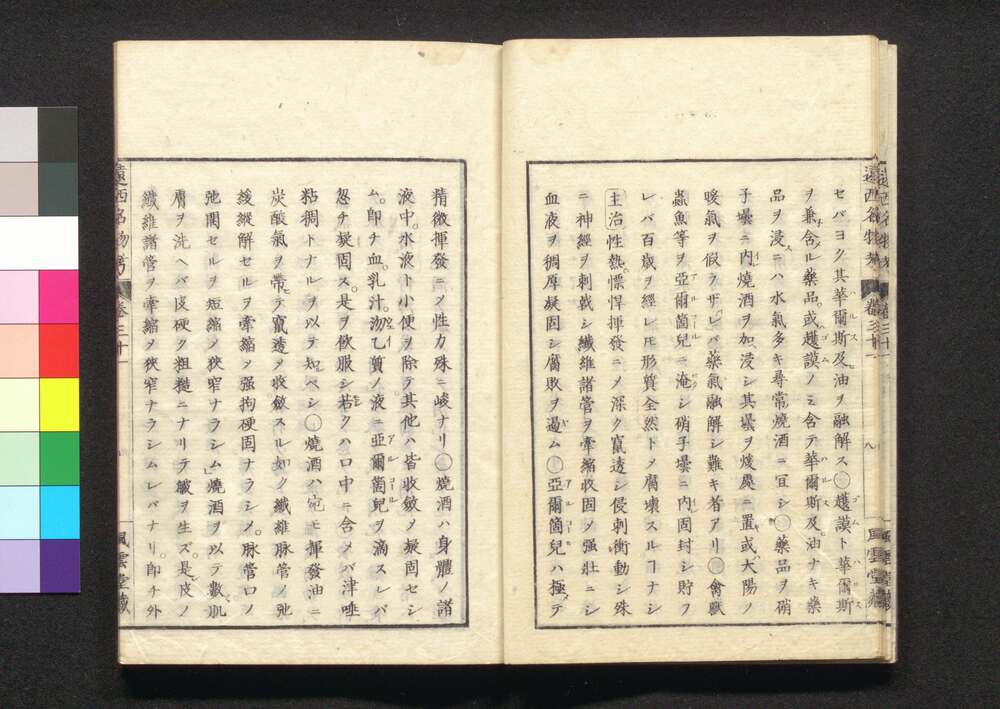 セバヨク其華爾斯及油ヲ融解ス○護謨ト華爾斯
ヲ兼含メル藥品或護謨ノミ含テ華爾斯及油ナキ藥
品ヲ浸ニハ水氣多キ尋常燒酒ニ宜シ○藥品ヲ硝
子壜ニ内燒酒ヲ加浸シ其壜ヲ煖處ニ置或大陽ノ
暖氣ヲ假ラザレバ藥氣融解シ難キ者アリ○禽獸
蟲魚等ヲ亞爾箇兒ニ淹シ硝子壜ニ内固封シ貯フ
レバ百歳ヲ經レ𪜈形質全然トメ腐壞スルヿナシ
主治性熱慓悍揮發ニメ深ク竄透シ侵刺衝動シ殊
ニ神經ヲ刺戟シ纖維諸管ヲ牽縮收固メ强壯ニシ
血液ヲ稠厚凝固シ腐敗ヲ遏ム○亞爾箇兒ハ極テ
遠西名物考 卷三十一 八 風雲堂藏
精微揮發ニメ性力殊ニ峻ナリ○燒酒ハ身體ノ諸
液中水液ト小便ヲ除テ其他ハ皆收斂メ凝固セシ
ム即チ血乳汁沕乙質ノ液ニ亞爾箇兒ヲ滴スレバ
忽チ凝固ス是ヲ飮服シ若クハ口中ニ含メバ津唾
粘稠トナルヲ以テ知ベシ○燒酒ハ宛モ揮發油ニ
炭酸氣ヲ帶テ竄透メ收斂スル如ク纖維脉管ノ弛
緩縱解セルヲ牽縮メ强拘硬固ナラシメ脉管口ノ
弛開セルヲ短縮メ狹窄ナラシム燒酒ヲ以テ數肌
膚ヲ洗ヘバ皮硬ク粗糙ニナリテ皺ヲ生ズ是皮ノ
纖維諸管ヲ牽縮メ狹窄ナラシムレバナリ即チ外